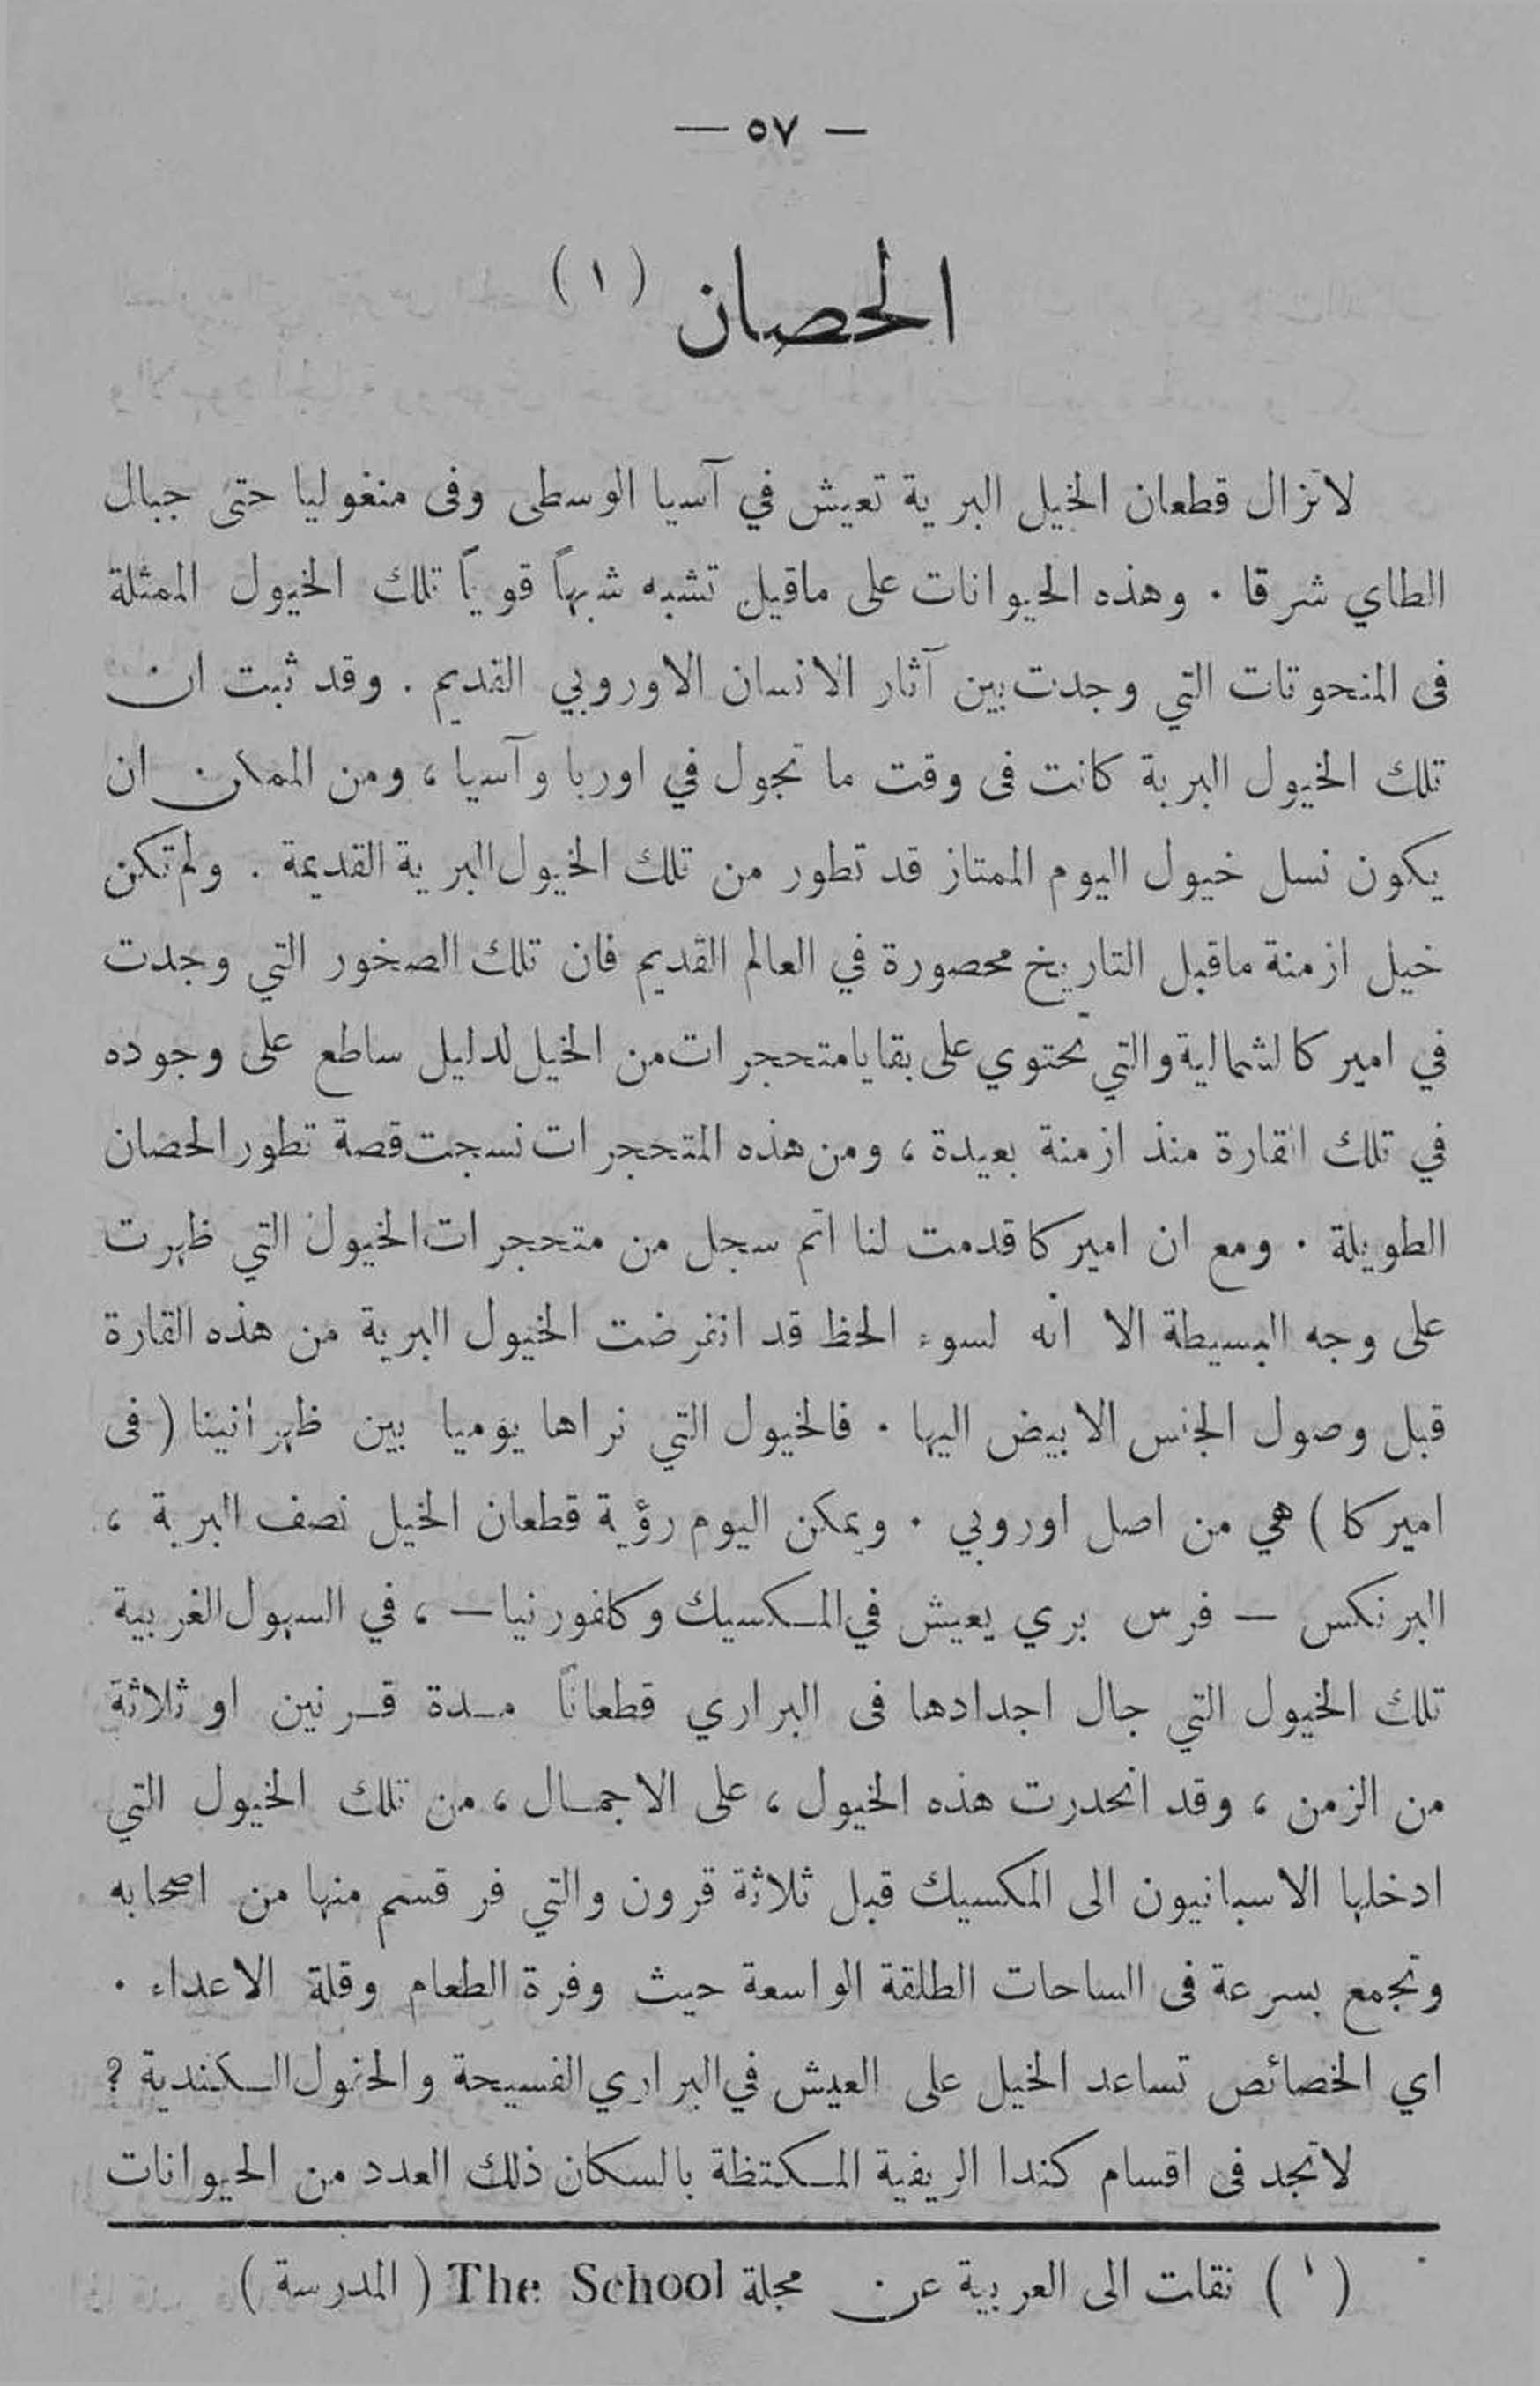 — ٥٧ —
الحصان (١)
لاتزال قطعان الخيل البرية تعيش في آسيا الوسطى وفى منغوليا حتى جبال
الطاي شرقا . وهذه الحيوانات على ماقيل تشبه شبهاً قوياً تلك الخيول الممثلة
فى المنحوتات التي وجدت بين آثار الانسان الاوروبي القديم . وقد ثبت ان
تلك الخيول البربة كانت فى وقت ما تجول في اوربا وآسيا ، ومن الممكن ان
يكون نسل خيول اليوم الممتاز قد تطور من تلك الخيول البرية القديمة . ولم تكن
خيل ازمنة ماقبل التاريخ محصورة في العالم القديم فان تلك الصخور التي وجدت
في اميركا لشمالية والتي تحتوي على بقايا متحجرات من الخيل لدليل ساطع على وجوده
في تلك القارة منذ ازمنة بعيدة ، ومن هذه المتحجرات نسجت قصة تطور الحصان
الطويلة . ومع ان اميركا قدمت لنا اتم سجل من متحجرات الخيول التي ظهرت
على وجه البسيطة الا انه لسوء الحظ قد انقرضت الخيول البرية من هذه القارة
قبل وصول الجنس الابيض اليها . فالخيول التي نراها يوميا بين ظهرانينا (فى
اميركا) هي من اصل اوروبي . ويمكن اليوم رؤية قطعان الخيل نصف البرية ،
البرنكس — فرس بري يعيش في المكسيك وكالفورنيا — ، في السهول الغربية
تلك الخيول التي جال اجدادها فى البراري قطعاناً مدة قرنين او ثلاثة
من الزمن ، وقد انحدرت هذه الخيول ، على الاجمال ، من تلك الخيول التي
ادخلها الاسبانيون الى المكسيك قبل ثلاثة قرون والتي فر قسم منها من اصحابه
وتجمع بسرعة فى الساحات الطلقة الواسعة حيث وفرة الطعام وقلة الاعداء .
اي الخصائص تساعد الخيل على العيش في البراري الفسيحة والحقول الكندية ؟
لاتجد فى اقسام كندا الريفية المكتظة بالسكان ذلك العدد من الحيوانات
(١) نقلت الى العربية عن مجلة The School (المدرسة)